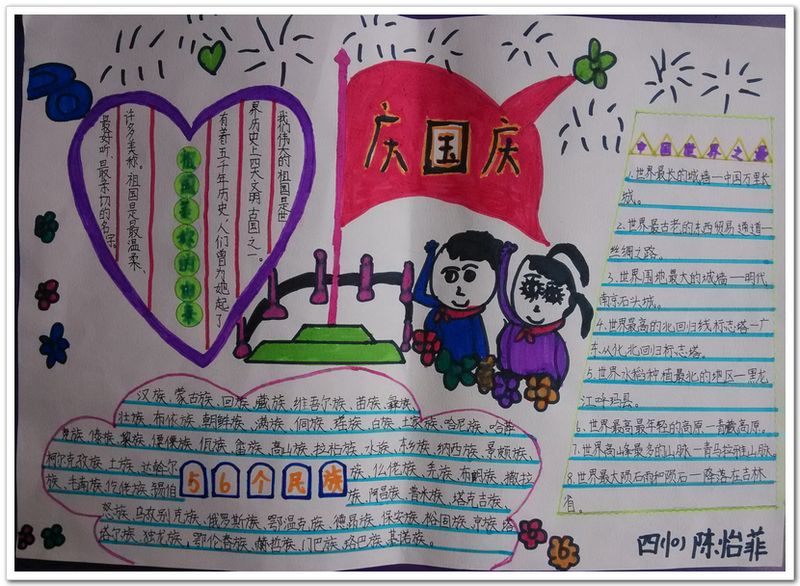 庆国庆
我们伟大的祖国是世
界历史上四大文明古国之一。
有着五千年历史,人们曾为她起了
祖国美称的由来
许多美称。祖国是最温柔、
最好听、最亲切的名字。
中国世界之最
1.世界最长的城墙—中国万里长
城。
2.世界最古老的东西贸易通道—
丝绸之路。
3.世界围地最大的城墙—明代
南京石头城。
4.世界最高的北回归线标志塔—广
东从化北回归标志塔。
5.世界水稻种植最北的地区—黑龙
江呼玛县。
6.世界最高最年轻的高原—青藏高原。
8.世界最大陨石雨和陨石—降落在吉林
省。
汉族、蒙古族、回族、藏族、维吾尔族、苗族、彝族
壮族、布依族、朝鲜族、满族、侗族、瑶族、白族、土家族、哈尼族、哈萨
克族、傣族、黎族、傈僳族、佤族、畲族、高山族、拉祜族、水族、东乡族、纳西族、景颇族、
柯尔克孜族、土族、达斡尔
族、仫佬族、羌族、布朗族、撒拉
56个民族
族、毛南族、仡佬族、锡伯
族、阿昌族、普米族、塔克吉族、
怒族、乌孜别克族、俄罗斯族、鄂温克族、德昂族、保安族、裕固族、京族、塔
塔尔族、独龙族、鄂伦春族、赫哲族、门巴族、珞巴族、基诺族。
陈怡菲